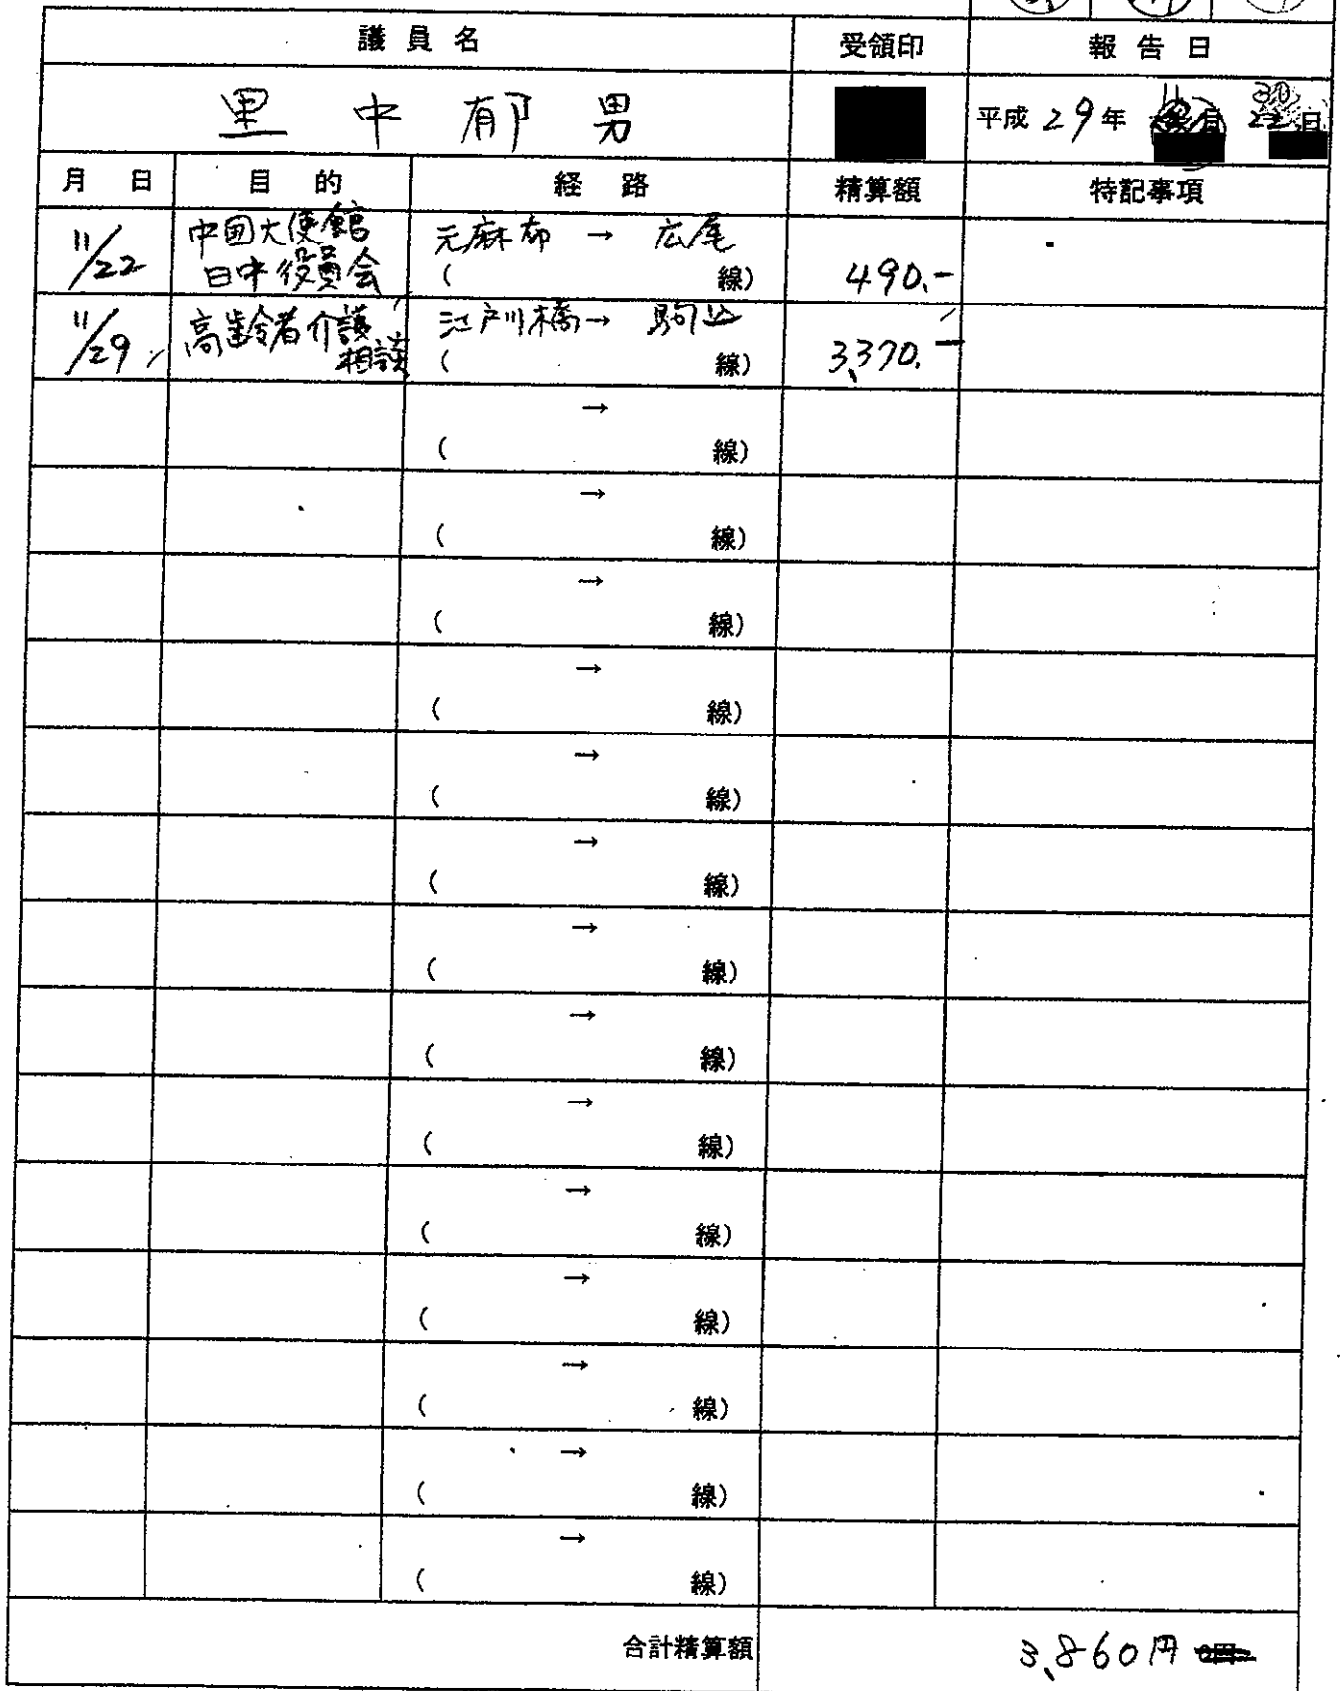 議員名 受領印 報告日
里中郁男 平成29年 11月30日
月 日 目 的 経 路 精算額 特記事項
11/22 中国大使館 元麻布 → 広尾
日中役員会 ( 線) 490.-
11/29 高齢者介護 江戸川橋→ 駒込
相談 ( 線) 3,370.-
→
( 線)
→
( 線)
→
( 線)
→
( 線)
→
( 線)
→
( 線)
→
( 線)
→
( 線)
→
( 線)
→
( 線)
→
( 線)
→
( 線)
→
( 線)
→
( 線)
合計精算額 3,860円